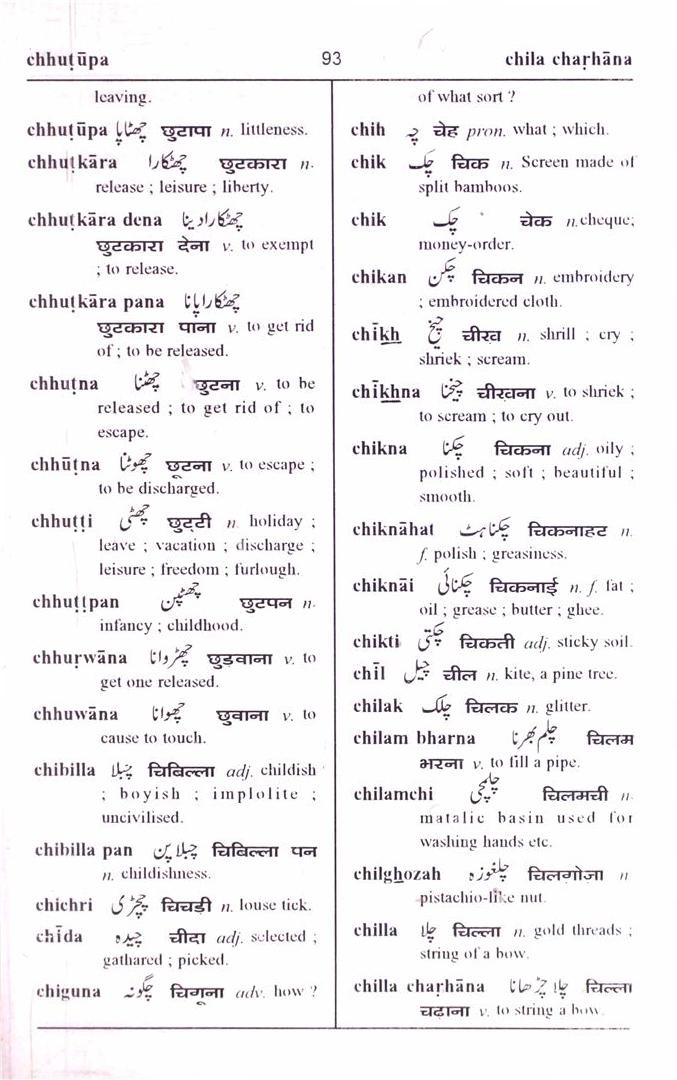 chhuṭūpa 93 chila chaṛhāna
leaving.
chhuṭūpa چھٹاپا छुटापा n. littleness.
chhuṭkāra چھٹکارا छुटकारा n.
release ; leisure ; liberty.
chhuṭkāra dena چھٹکارا دینا
छुटकारा देना v. to exempt
; to release.
chhuṭkāra pana چھٹکارا پانا
छुटकारा पाना v. to get rid
of ; to be released.
chhuṭna چھٹنا छुटना v. to be
released ; to get rid of ; to
escape.
chhūṭna چھوٹنا छूटना v. to escape ;
to be discharged.
chhuṭṭi چھٹی छुट्टी n. holiday ;
leave ; vacation ; discharge ;
leisure ; freedom ; furlough.
chhuṭṭpan چھٹپن छुटपन n.
infancy ; childhood.
chhuṛwāna چھڑوانا छुड़वाना v. to
get one released.
chhuwāna چھوانا छुवाना v. to
cause to touch.
chibilla چبلا चिबिल्ला adj. childish
; boyish ; implolite ;
uncivilised.
chibilla pan چبلا پن चिबिल्ला पन
n. childishness.
chichri چچڑی चिचडी n. louse tick.
chīda چیدہ चीदा adj. selected ;
gathared ; picked.
chiguna چگونہ चिगूना adv. how ?
of what sort ?
chih چہ चेह pron. what ; which.
chik چک चिक n. Screen made of
split bamboos.
chik چک चेक n. cheque;
money-order.
chikan چکن चिकन n. embroidery
; embroidered cloth.
chīkh چیخ चीख n. shrill ; cry ;
shriek ; scream.
chīkhna چیخنا चीखना v. to shriek ;
to scream ; to cry out.
chikna چکنا चिकना adj. oily ;
polished ; soft ; beautiful ;
smooth.
chiknāhat چکناہٹ चिकनाहट n.
f. polish ; greasiness.
chiknāi چکنائی चिकनाई n. f. fat ;
oil ; grease ; butter ; ghee.
chikti چکتی चिकती adj. sticky soil.
chīl چیل चील n. kite, a pine tree.
chilak چلک चिलक n. glitter.
chilam bharna چلم بھرنا चिलम
भरना v. to fill a pipe.
chilamchi چلمچی चिलमची n.
matalic basin used for
washing hands etc.
chilghozah چلغوزہ चिलगोज़ा n
pistachio-like nut.
chilla چلا चिल्ला n. gold threads ;
string of a bow.
chilla chaṛhāna چلا چڑھانا चिल्ला
चढ़ाना v. to string a bow.